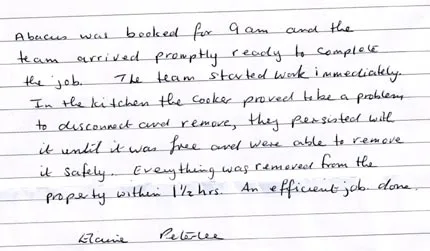 Abacus was booked for 9am and the
team arrived promptly ready to complete
the job. The team started work immediately.
In the kitchen the cooker proved to be a problem
to disconnect and remove, they persisted with
it until it was free and were able to remove
it safely. Everything was removed from the
property within 1½ hrs. An efficient job done.
Elaine